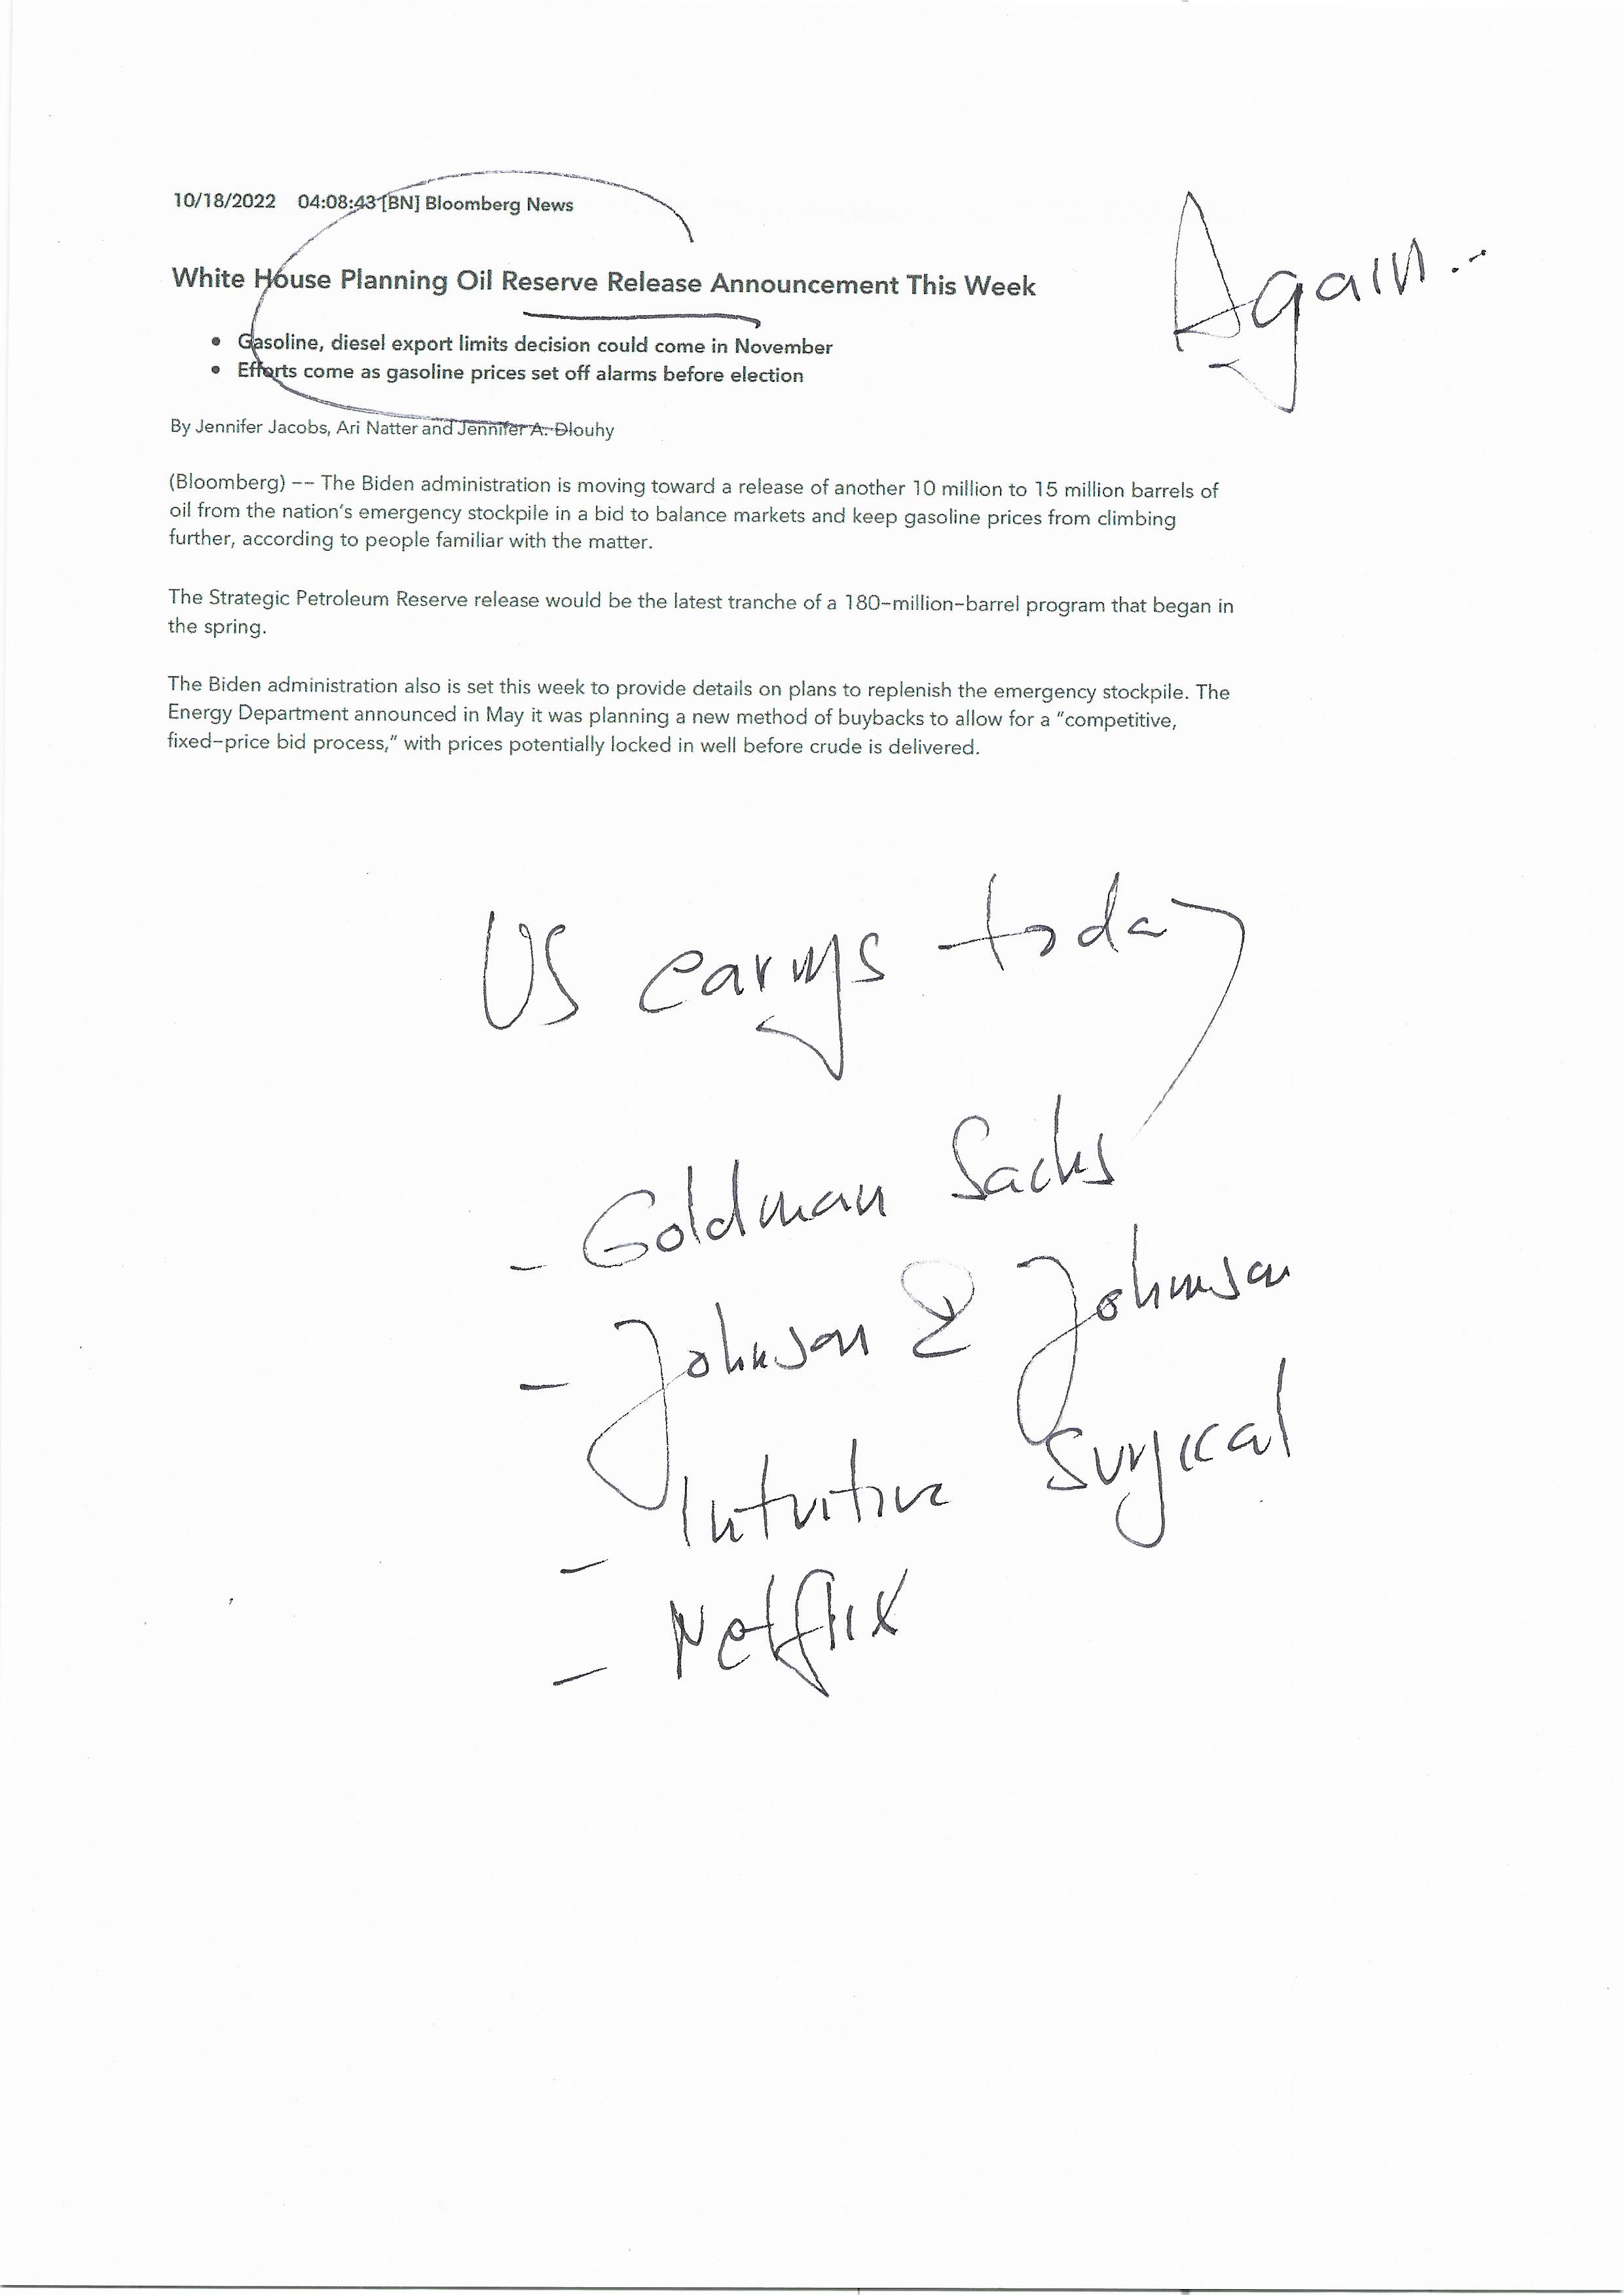 10/18/2022 04:08:43 [BN] Bloomberg News
Again...
White House Planning Oil Reserve Release Announcement This Week
• Gasoline, diesel export limits decision could come in November
• Efforts come as gasoline prices set off alarms before election
By Jennifer Jacobs, Ari Natter and Jennifer A. Dlouhy
(Bloomberg) -- The Biden administration is moving toward a release of another 10 million to 15 million barrels of
oil from the nation's emergency stockpile in a bid to balance markets and keep gasoline prices from climbing
further, according to people familiar with the matter.
The Strategic Petroleum Reserve release would be the latest tranche of a 180-million-barrel program that began in
the spring.
The Biden administration also is set this week to provide details on plans to replenish the emergency stockpile. The
Energy Department announced in May it was planning a new method of buybacks to allow for a "competitive,
fixed-price bid process," with prices potentially locked in well before crude is delivered.
US earngs today
- Goldman Sachs
- Johnson & Johnson
- Intuitive Surgical
- Netflix